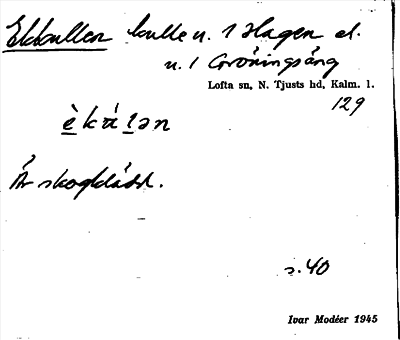 Ekkullen kulle u. 1 Hagen el.
u. 1 Gröningsäng
Lofta sn, N. Tjusts hd, Kalm. l.
129
è k á l ə n
Är skogklädd.
s. 40
Ivar Modéer 1945